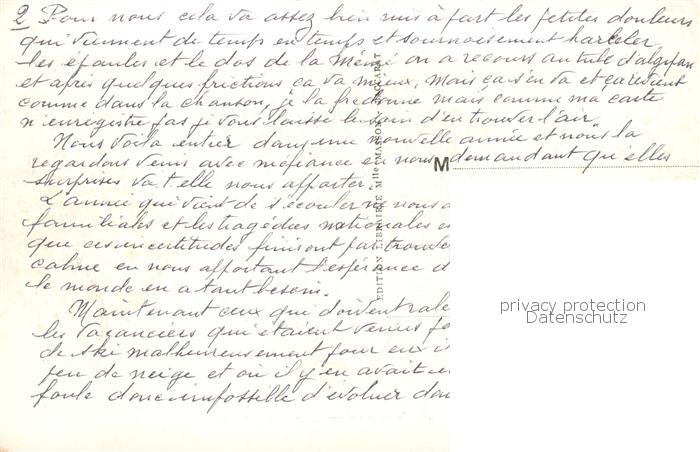 2 Pour nous cela va assez bien mis à part les petites douleurs
qui viennent de temps en temps et sournoisement harceler
les épaules et le dos de la Mémé on a recours au tube d'algipan
et après quelques frictions ça va mieux, mais ça s'en va et ça revient
comme dans la chanson, je la fredonne mais comme ma carte
n'enregistre pas je vous laisse le soin d'en trouver l'air.
Nous voila entrer dans une nouvelle année et nous la
regardons venir avec méfiance et nous demandant qu'elles
surprises va t.elle nous apporter.
L'année qui vient de s'écouler ne nous a
familiales et les tragédies nationales
que ces incertitudes finiront par trouver
calme en nous apportant l'espérance d
le monde en a tant besoin.
Maintenant ceux qui doivent
les vacanciers qui étaient venus
de ski malheureusement pour eux il
peu de neige et où il y en avait
foule donc impossible d'évoluer
M
EDITION LIBRAIRIE Mlle
privacy protection
Datenschutz